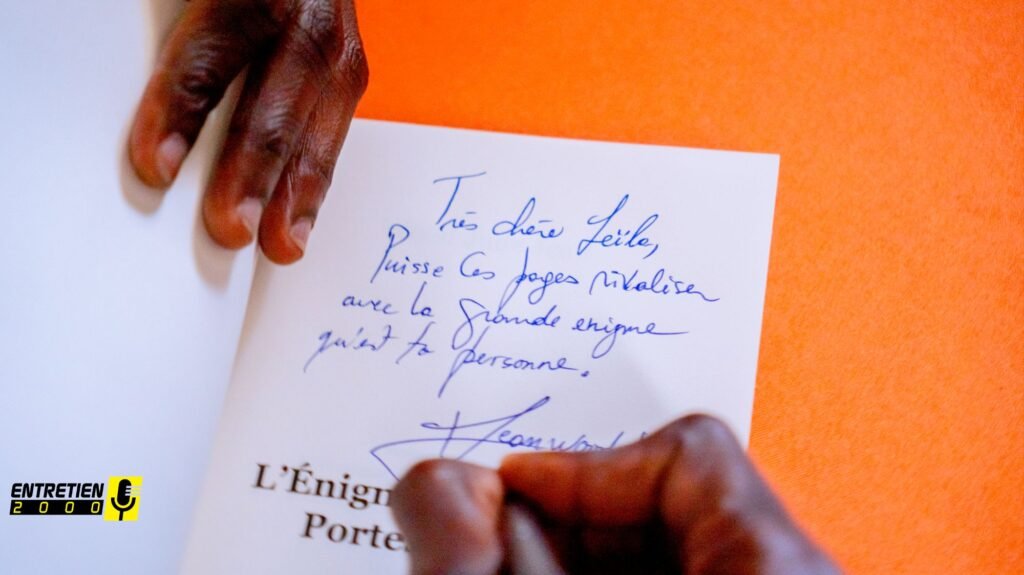 Très chère Leïla,
Puisse ces pages rivaliser
avec la grande enigme
qu'est ta personne.
L'Énigm
Porte
ENTRETIEN
2000